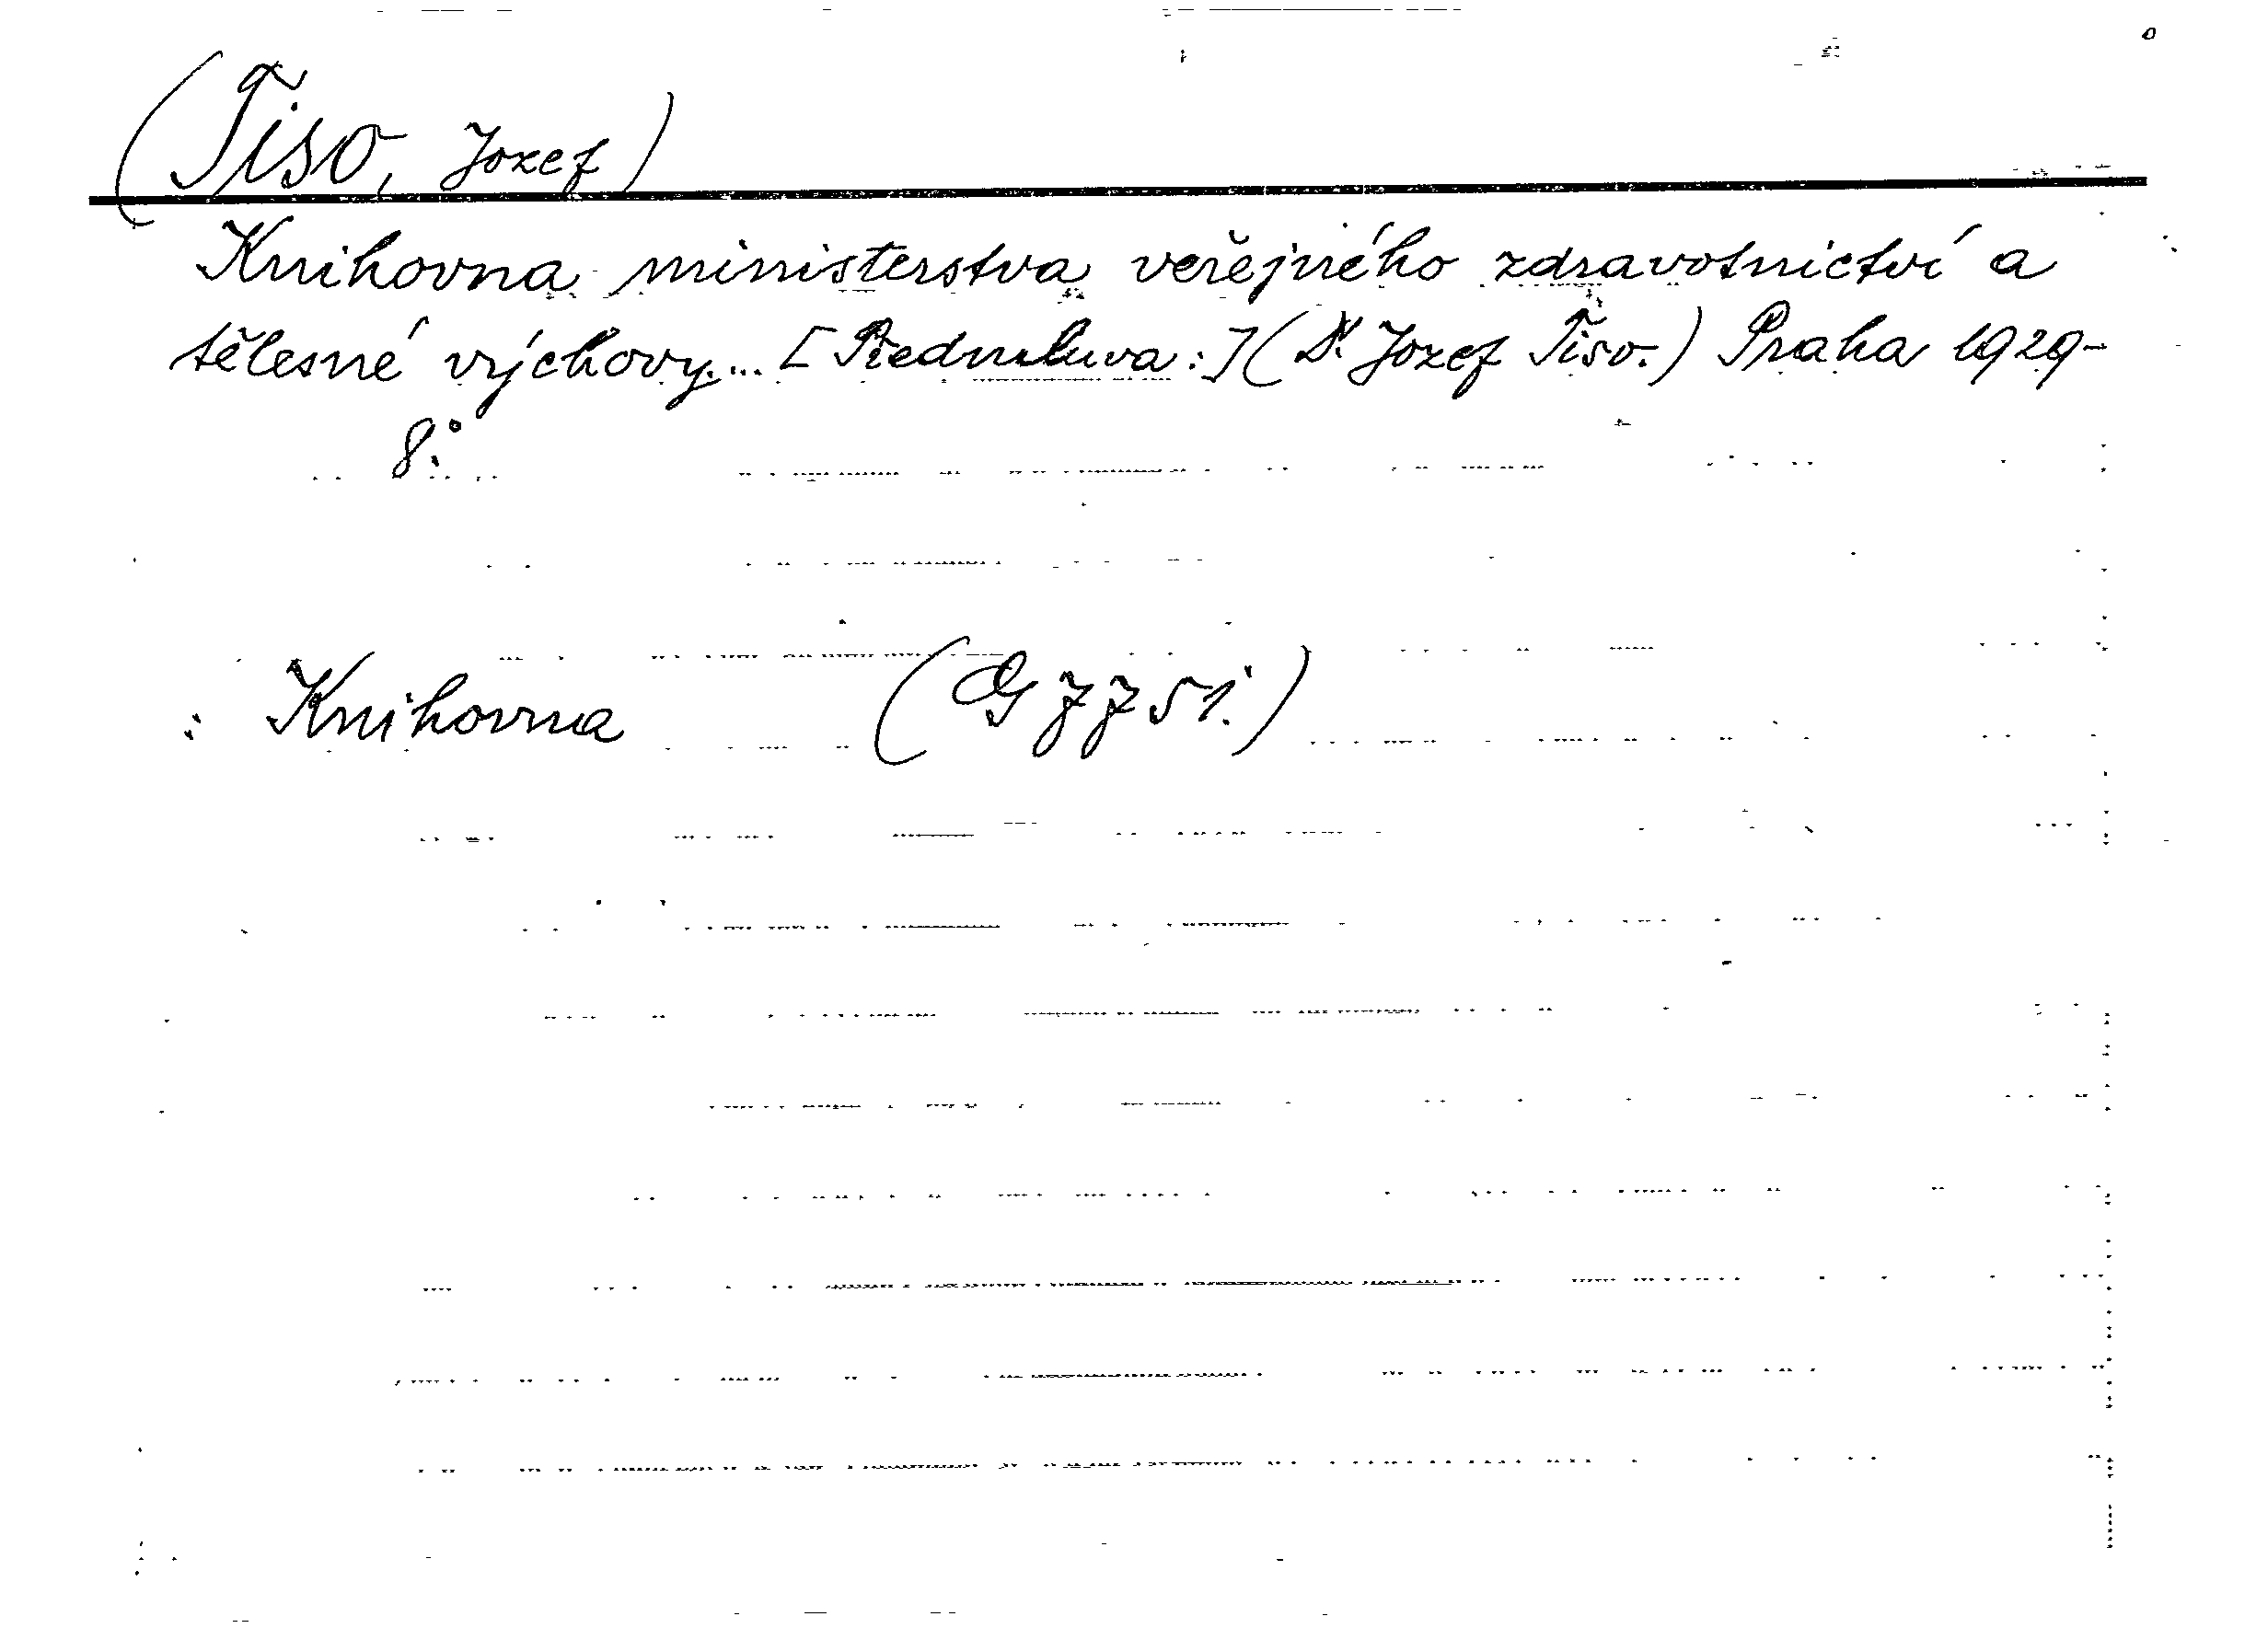 (Tiso, Jozef)
Knihovna ministerstva veřejného zdravotnictví a
tělesné výchovy... [Předmluva:] (Dr. Jozef Tiso.) Praha 1929-
8.°
: Knihovna (G 7751.)